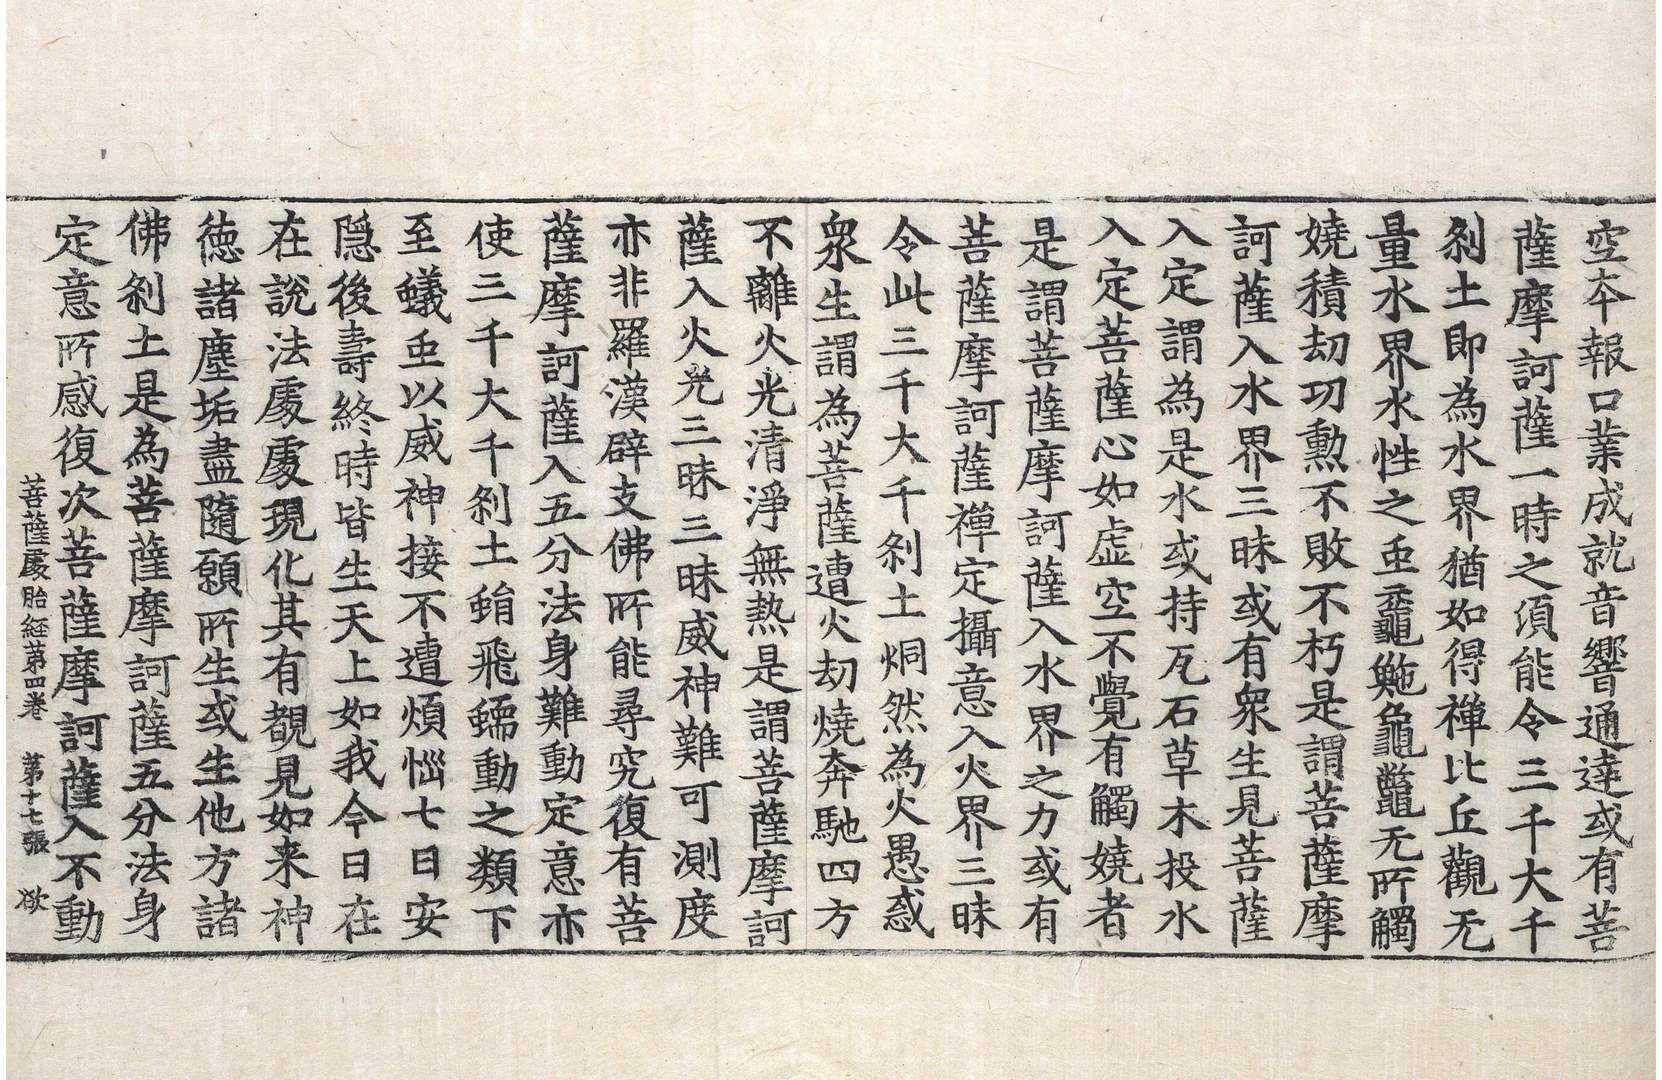 空本報口業成就音響通達或有菩
薩摩訶薩一時之須能令三千大千
剎土即為水界猶如得禪比丘觀无
量水界水性之䖝黿鼉龜鼈无所觸
嬈積劫功勲不敗不朽是謂菩薩摩
訶薩入水界三昧或有衆生見菩薩
入定謂為是水或持瓦石草木投水
入定菩薩心如虛空不覺有觸嬈者
是謂菩薩摩訶薩入水界之力或有
菩薩摩訶薩禪定攝意入火界三昧
令此三千大千剎土烔然為火愚惑
衆生謂為菩薩遭火劫燒奔馳四方
不離火光清淨無熱是謂菩薩摩訶
薩入火光三昧三昧威神難可測度
亦非羅漢辟支佛所能尋究復有菩
薩摩訶薩入五分法身難動定意亦
使三千大千剎土蜎飛蠕動之類下
至蟻䖝以威神接不遭煩惱七日安
隱後壽終時皆生天上如我今日在
在說法處處現化其有覩見如来神
德諸塵垢盡隨願所生或生他方諸
佛剎土是為菩薩摩訶薩五分法身
定意所感復次菩薩摩訶薩入不動
菩薩處胎經第四卷 第十七張 欲